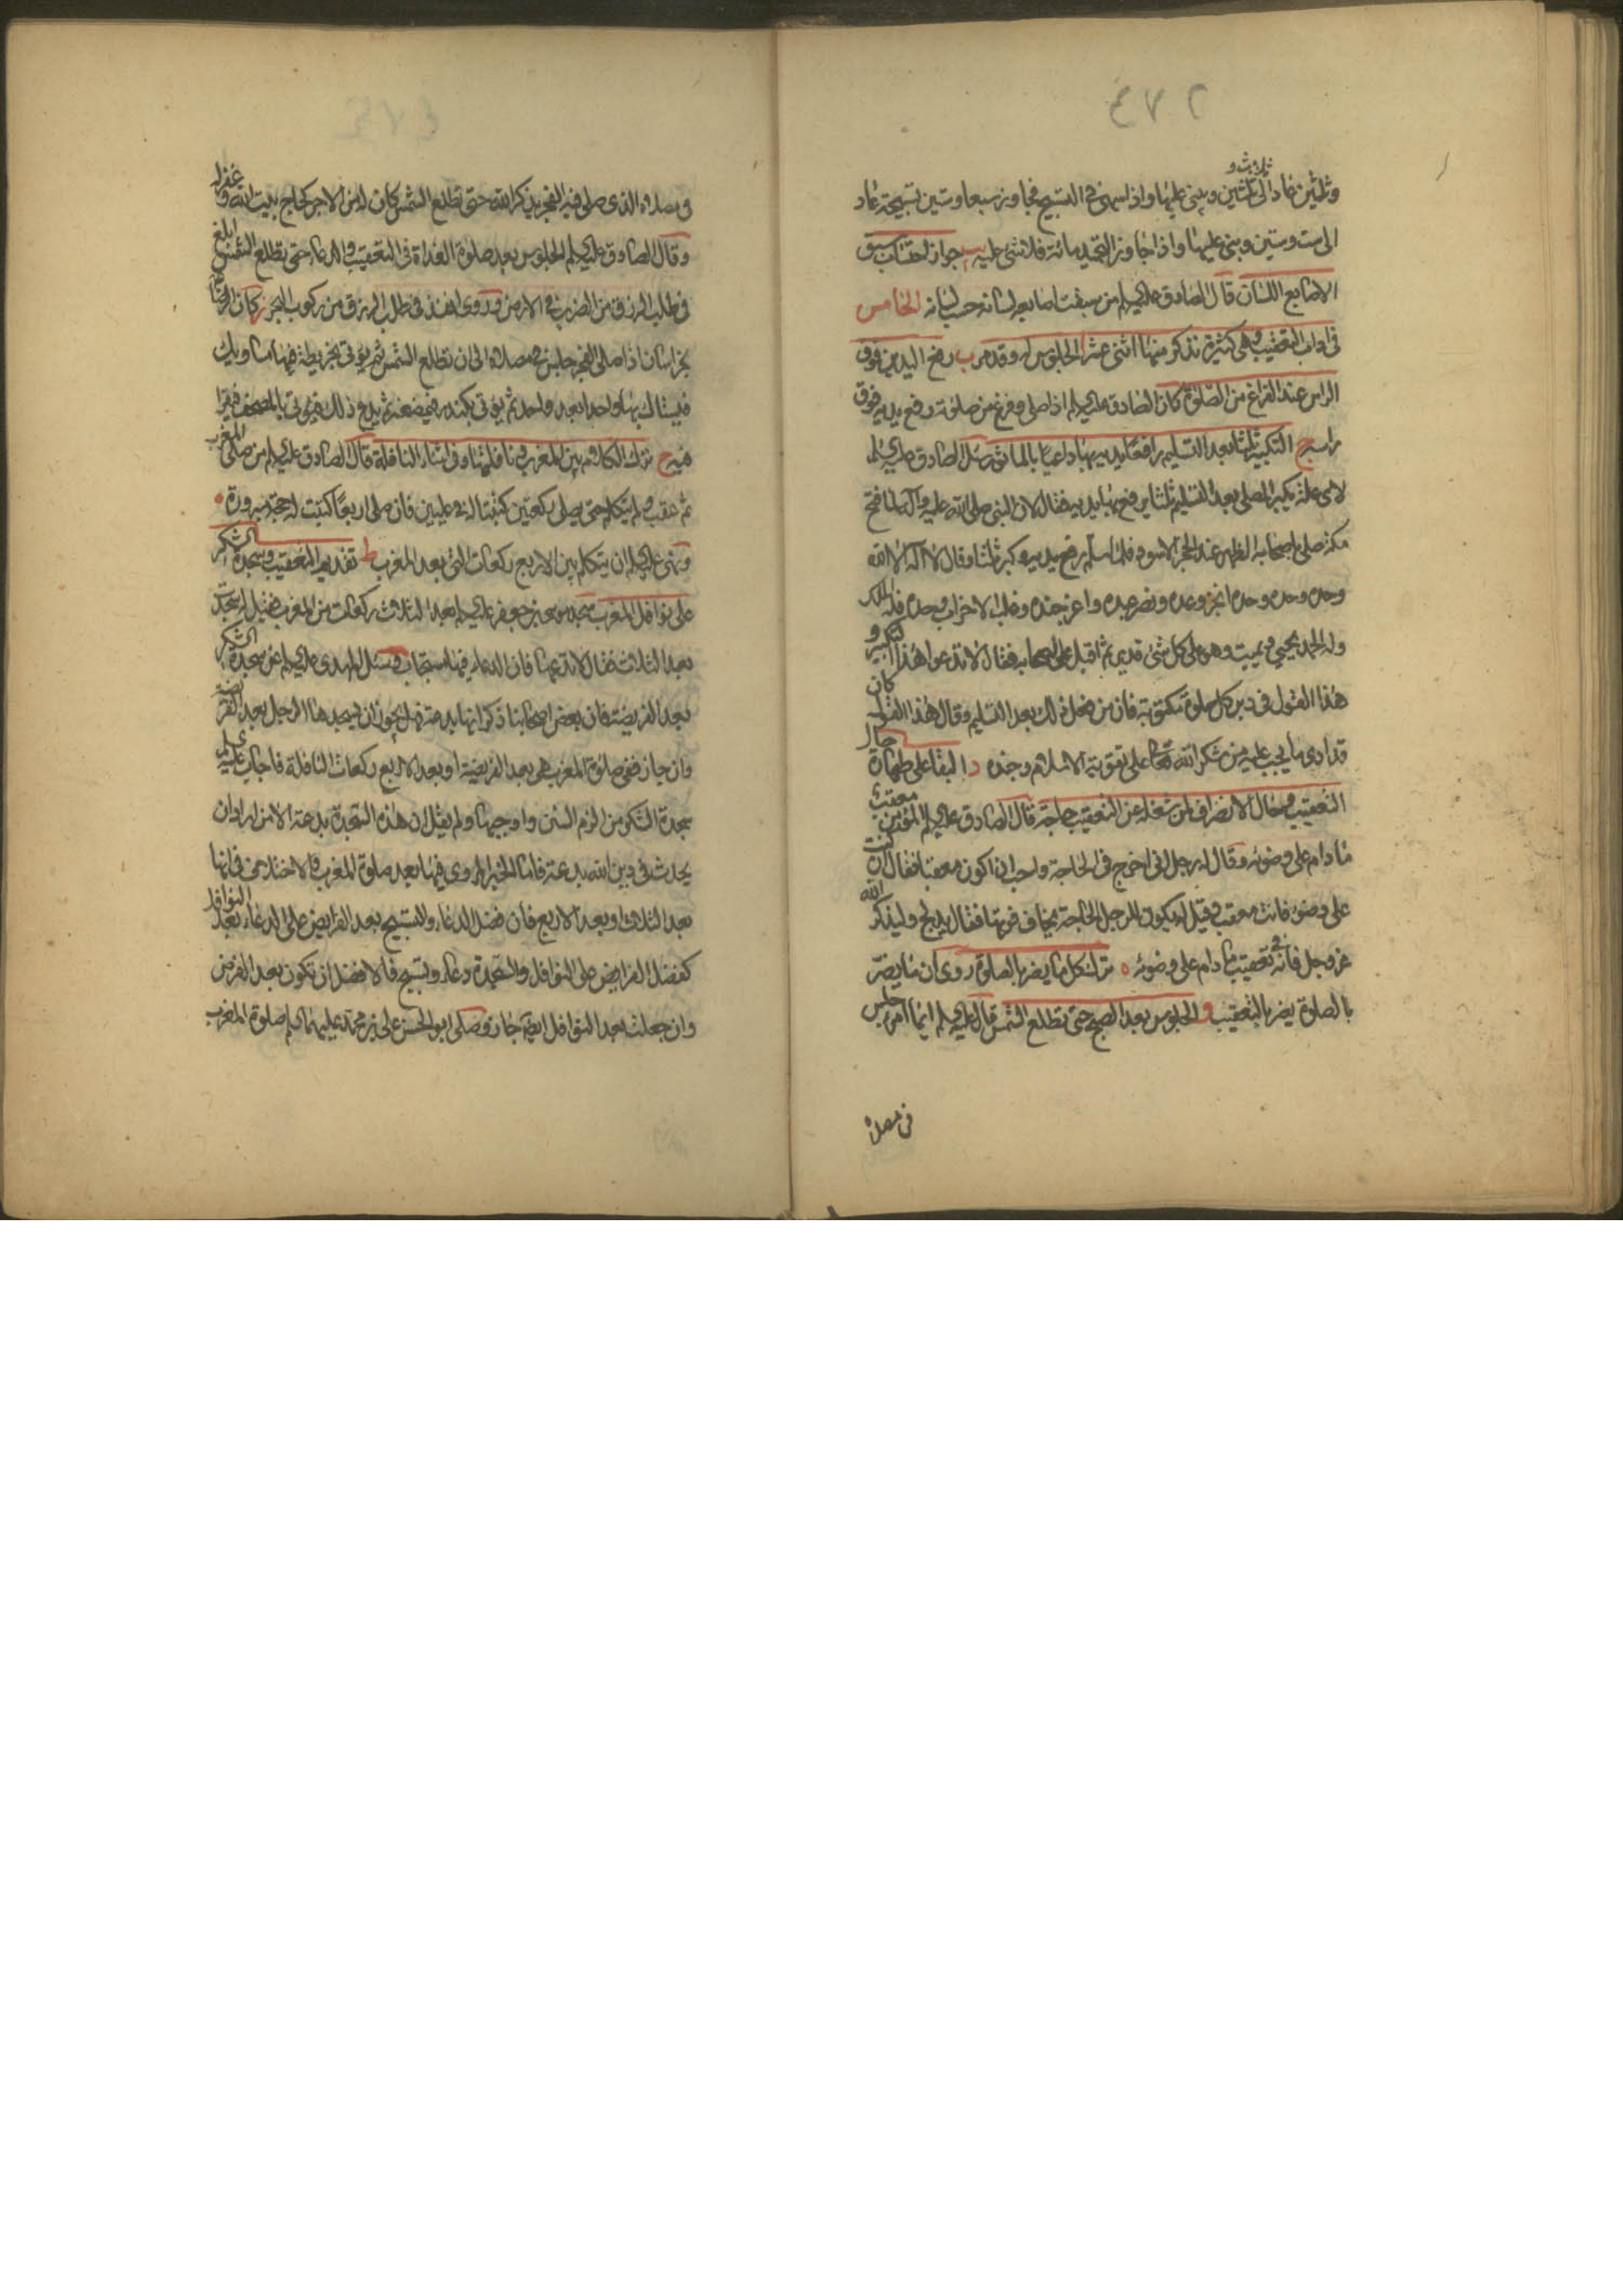 ٤٧٢
ثلاث و
وثلثين عاد الى ثلثين ويبنى عليها واذا سهى فى التسبيح فجاوز سبعا وستين تسبيحة عاد
الى ست وستين وبنى عليها واذا جاوز التحميد مائة فلا شئ عليه يب جواز احتساب سبق
الاصابع اللسان قال الصادق عليه السلم من سبقت اصابعه لسانه حسب له الخامس
فى اداب التعقيب وهى كثيرة نذكر منها اثنى عشر ا الجلوس له وقد مر ب رفع اليدين فوق
الراس عند الفراغ من الصلوة كان الصادق عليه السلم اذا صلى وفرغ من صلوته رفع يديه فوق
راسه ج التكبير ثلثا بعد التسليم رافعا يديه بها داعيا بالماثور سئل الصادق عليه السلم
لاى علة يكبر المصلى بعد التسليم ثلثا يرفع بها يديه فقال لان النبى صلى الله عليه وآله لما فتح
مكة صلى باصحابه الظهر عند الحجر الاسود فلما سلم رفع يديه وكبر ثلثا وقال لا اله الا الله
وحده وحده وحده انجز وعده ونصر عبده واعز جنده وغلب الاحزاب وحده فله الملك
وله الحمد يحيي ويميت وهو على كل شئ قدير ثم اقبل على اصحابه فقال لا تدعوا هذا التكبير و
هذا القول فى دبر كل صلوة مكتوبة فان من فعل ذلك بعد التسليم وقال هذا القول كان
قد ادى ما يجب عليه من شكر الله تعالى على تقوية الاسلام وجنده د البقا على طهارة حال
التعقيب وحال الانصراف لمن شغله عن التعقيب حاجة قال الصادق عليه السلم المؤمن معقب
ما دام على وضوئه وقال له رجل انى اخرج فى الحاجة واحب ان اكون معقبا فقال ان كنت
على وضوء فانت معقب وقيل له يكون للرجل الحاجة يخاف فوتها فقال يدلج وليذكر الله
عز وجل فانه فى تعقيب ما دام على وضوئه ه ترك كل ما يضر بالصلوة روى ان ما يضر
بالصلوة يضر بالتعقيب و الجلوس بعد الصبح حتى تطلع الشمس قال عليه السلم ايما امرء جلس
فى مصلاه
فى مصلاه الذى صلى فيه الفجر يذكر الله حتى تطلع الشمس كان له من الاجر كحاج بيت الله وغفر له
وقال الصادق عليه السلم الجلوس بعد صلوة الغداة فى التعقيب والدعاء حتى تطلع الشمس ابلغ
فى طلب الرزق من الضرب فى الارض وروى انفذ فى طلب الرزق من ركوب البحر ز كان الرضا
بخراسان اذا صلى الفجر جلس فى مصلاه الى ان تطلع الشمس ثم يؤتى بخريطة فيها مساويك
فيستاك بها واحدا بعد واحد ثم يؤتى بكندر فيمضغه ثم يدع ذلك فيؤتى بالمصحف فيقرا
فيه ح ترك الكلام بين المغرب ونافلتها وفى اثناء النافلة قال الصادق عليه السلم من صلى المغرب
ثم عقب ولم يتكلم حتى يصلى ركعتين كتبتا له فى عليين فان صلى اربعا كتبت له حجة مبرورة
ونهى عليه السلم ان يتكلم بين الاربع ركعات التى بعد المغرب ط تقديم التعقيب وسجدة الشكر
على نوافل المغرب سجد موسى بن جعفر عليه السلم بعد الثلاث ركعات من المغرب فقيل له سجدت
بعد الثلاث فقال لا تدعها فان الدعاء فيها مستجاب وسئل المهدى عليه السلم عن سجدة الشكر
بعد الفريضة فان بعض اصحابنا ذكر انها بدعة فهل يجوز ان يسجدها الرجل بعد الفريضة
وان جاز ففى صلوة المغرب هى بعد الفريضة او بعد الاربع ركعات النافلة فاجاب عليه السلم
سجدة الشكر من الزم السنن واوجبها ولم يقل ان هذه السجدة بدعة الا من اراد ان
يحدث فى دين الله بدعة فاما الخبر المروى فيها بعد صلوة المغرب والاختلاف فى انها
بعد الثلاث او بعد الاربع فان فضل الدعاء والتسبيح بعد الفرايض على الدعاء بعد النوافل
كفضل الفرايض على النوافل والسجدة دعاء وتسبيح فالافضل ان تكون بعد الفرض
وان جعلت بعد النوافل ايضا جاز وصلى ابو الحسن على بن محمد عليهما السلم صلوة المغرب